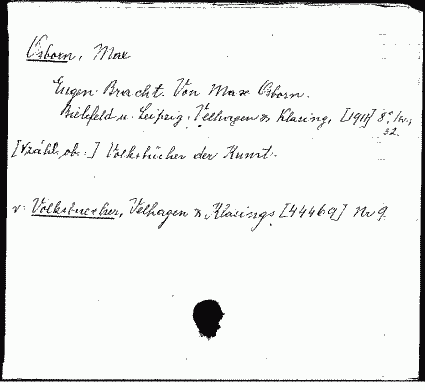 Osborn, Max
Eugen Bracht. Von Max Osborn.
Bielefeld u. Leipzig, Velhagen & Klasing, [1911] 8°
32.
ob.:] Volksbücher der Kunst.
v: Volksbuecher, Velhagen & Klasings [44469] Nr 9.